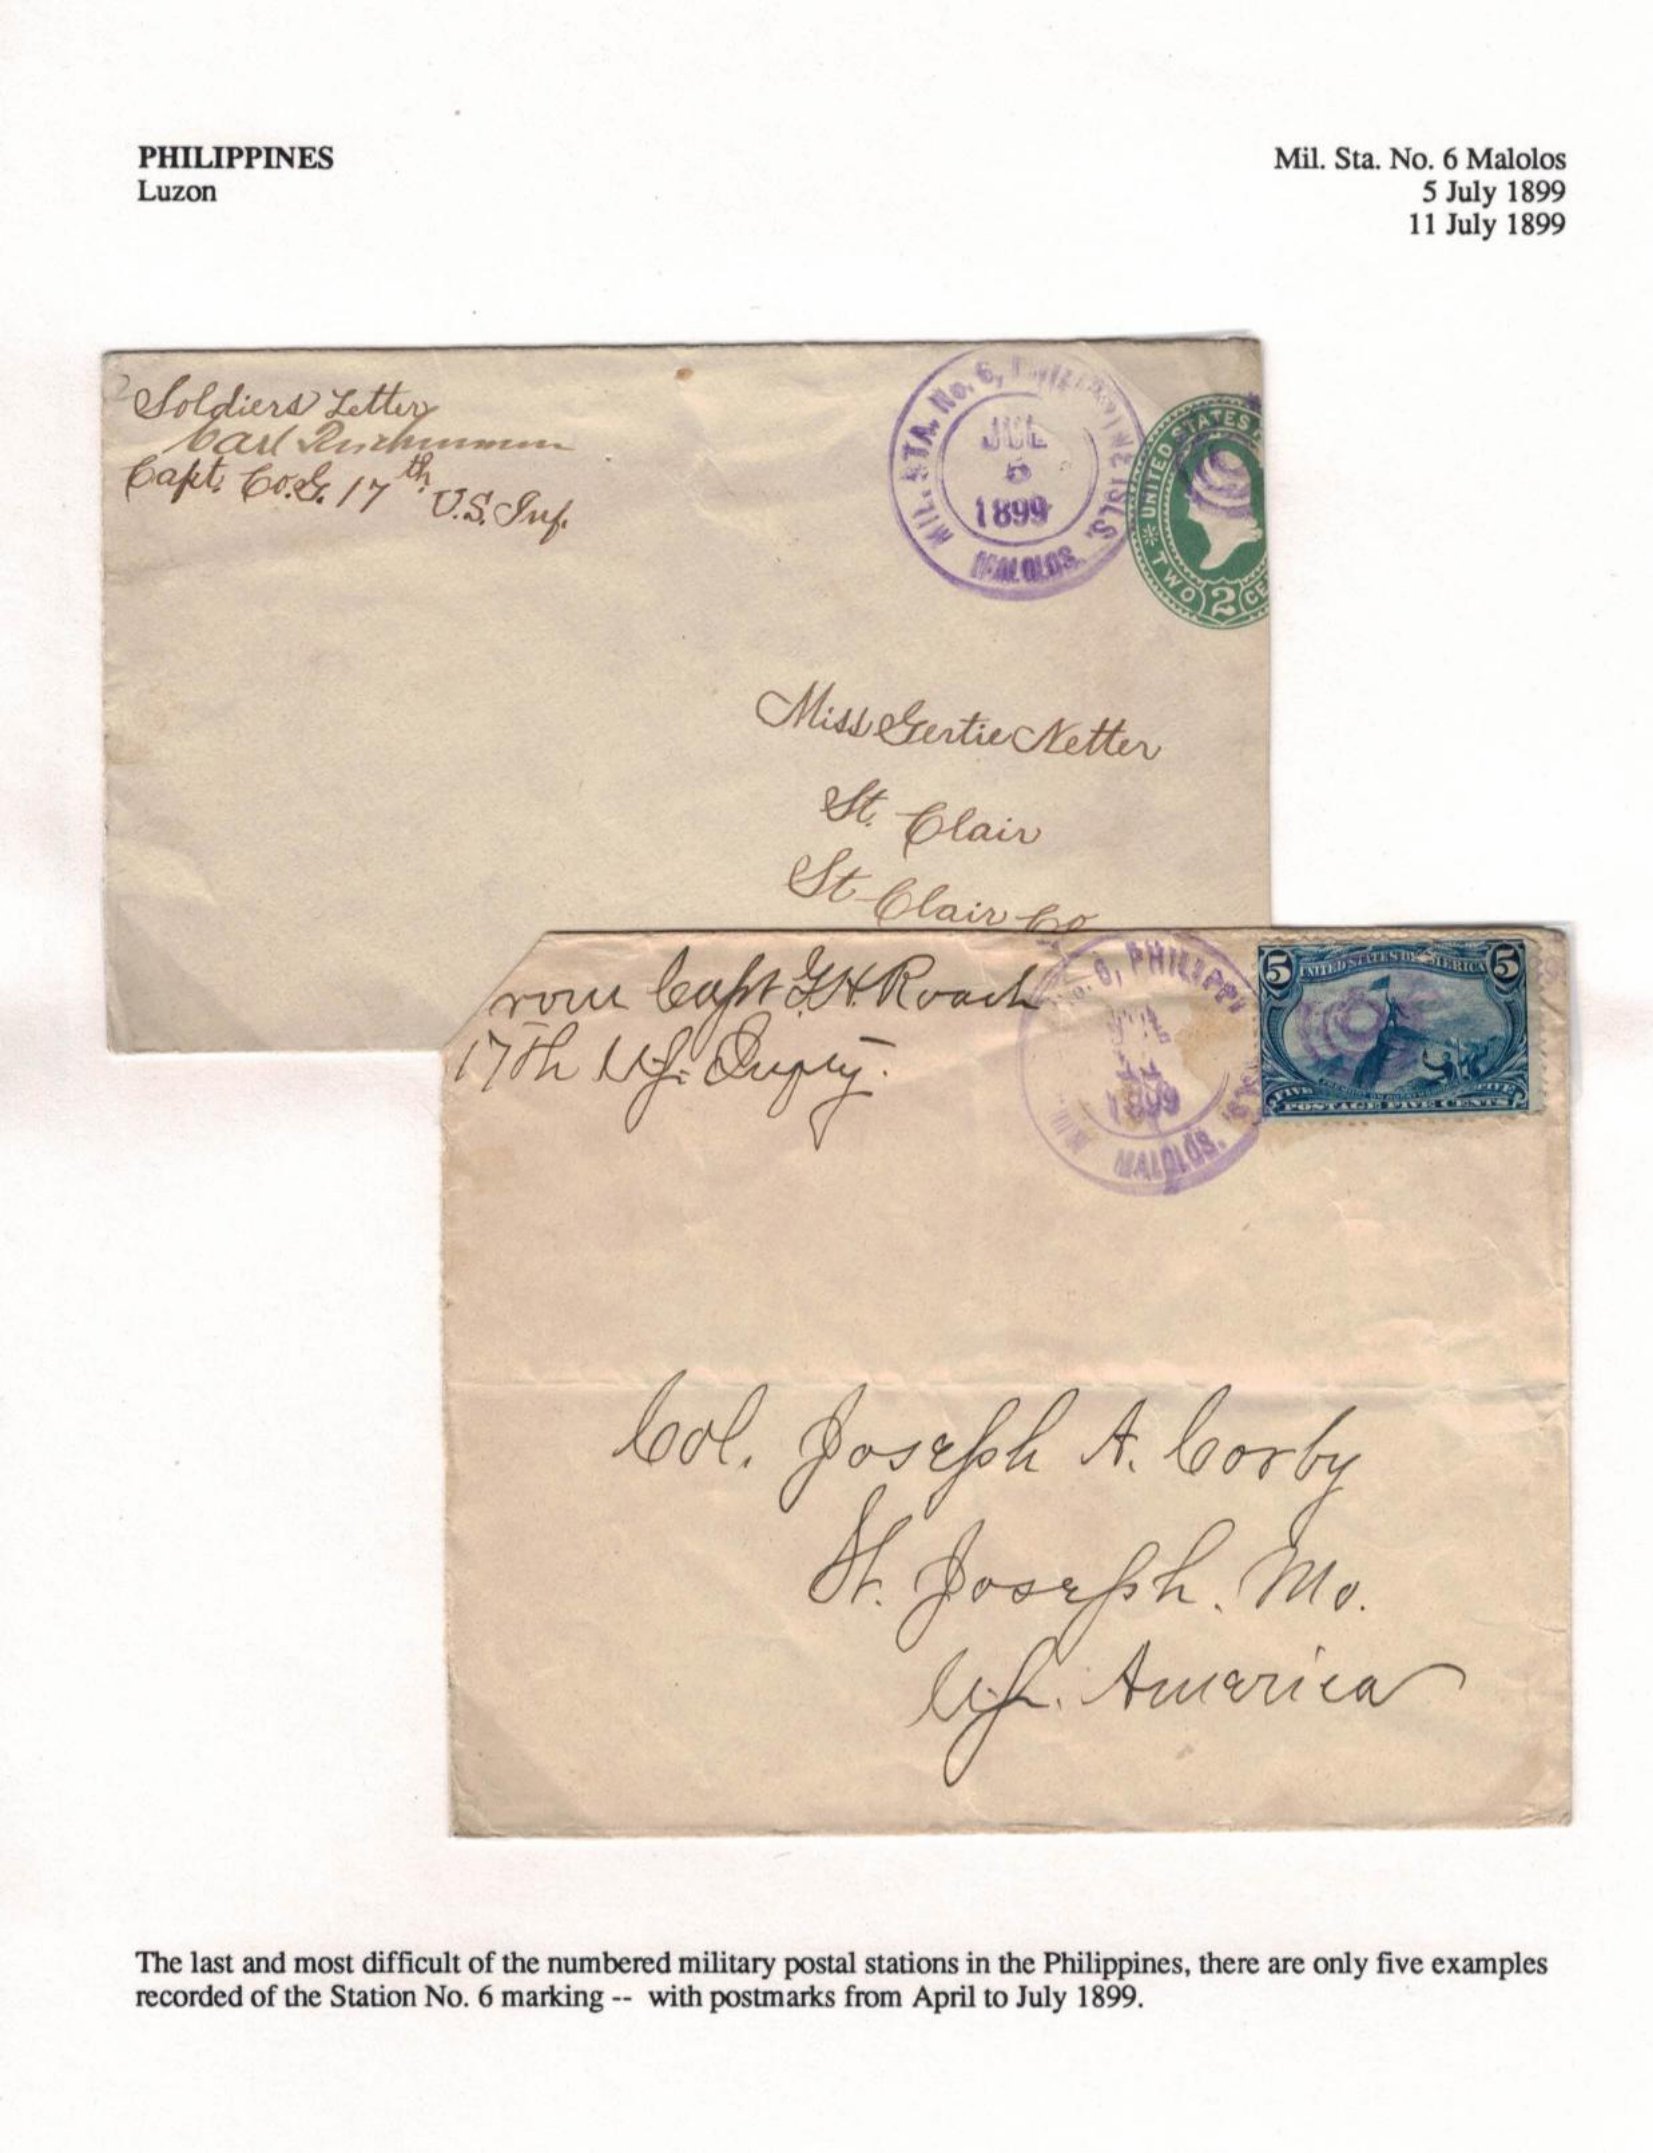 PHILIPPINES
Luzon
Mil. Sta. No. 6 Malolos
5 July 1899
11 July 1899
Soldiers Letter
Carl
Capt. Co. G. 17th U.S. Inf.
MIL. STA. No. 6, PHILIPPINE ISLS.
JUL
5
1899
MALOLOS.
UNITED STATES
TWO 2 CE
Miss Gertie Netter
St. Clair
St Clair Co
rom Capt G H Roach
17th US. Infty.
MIL No. 6, PHILIPPI ISLS.
JUL
11
1899
MALOLOS.
5 UNITED STATES OF AMERICA 5
FIVE FIVE
POSTAGE FIVE CENTS
Col. Joseph A. Corby
St. Joseph. Mo.
US. America
The last and most difficult of the numbered military postal stations in the Philippines, there are only five examples
recorded of the Station No. 6 marking -- with postmarks from April to July 1899.